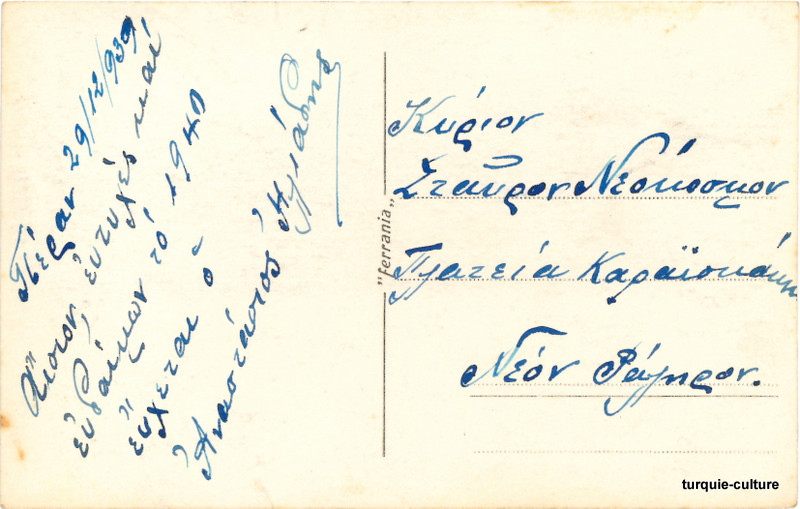 Πέραν 29/12/939
Αἴσιον, εὐτυχές καί
εὐδαίμων τό 1940
εὔχεται ὁ
Ἀναστάσιος Ἠλιάδης
"ferrania"
Κύριον
Σταῦρον Νεόκοσμον
Πλατεία Καραϊσκάκη
Νέον Φάληρον.
turquie-culture